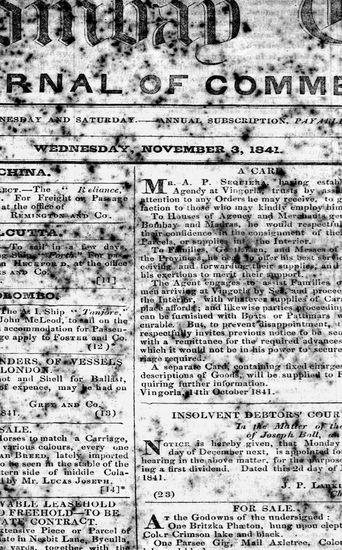 ombay
RNAL OF COMME
NESDAY AND SATURDAY.—ANNUAL SUBSCRIPTION, PAYABLE
WEDNESDAY, NOVEMBER 3, 1841.
CHINA.
ECT.—The "Reliance,
For Freight or Passage
at the office of
REMINGTON AND Co.
LCUTTA.
—To sail in a few days,
Ship "Forth." For pas-
D, at the office
S AND Co. [11]
OLOMBO.
The A 1 Ship "Tanfore,"
John McLeod, to sail on the
accommodation for Passen-
apply to FOSTER AND Co.
(12)
NDERS, OF VESSELS
LONDON.
and Shell for Ballast,
of expence, may be had on
AND Co.
841. (13)
SALE.
Horses to match a Carriage,
various colours, every one
AN BREED, lately imported
to be seen in the stable of the
tern side of middle Cola-
by Mr. LUCAS JOSEPH.
[14]
YABLE LEASEHOLD
D FREEHOLD—TO BE
ATE CONTRACT.
xtensive Piece or Parcel of
ate in Nesbit Lane, Byculla,
yards, together with the
A CARD.
MR. A. P. SEQUEIRA, having estab
Agency at Vingorla, trusts by assi
attention to any Orders he may receive, to g
faction to those who may kindly employ him
To Houses of Agency and Merchants ge
Bombay and Madras, he would respectf
their confidence in the consignment of the
Parcels, or supplies for the Interior.
To Families, Gentlemen, and Messes of
the Provinces, he begs to offer his best servi
ceiving and forwarding their supplies, and
his exertions to merit their support.
The Agent engages to assist Families o
men arriving at Vingorla by Sea, and procee
the Interior, with whatever supplies of Car
place affords, and likewise parties proceeding
can be furnished with Boats or Patimars w
curable. But, to prevent disappointment, t
respectfully invites previous notice to be sen
with a remittance for the required advances
which it would not be in his power to secure
riage required.
A separate Card, containing fixed charges
descriptions of Goods, will be supplied to P
quiring further information.
Vingorla, 14th October 1841.
INSOLVENT DEBTORS' COUR
In the Matter of the
of Joseph Boll, an
NOTICE is hereby given, that Monday
day of December next, is appointed fo
hearing in the above matter, for the purpose
ing a first dividend. Dated this 2d day of N
1841.
J. P. LARKI
(23)
FOR SALE.
AT the Godowns of the undersigned:
One Britzka Phæton, hung upon elept
Color Crimson lake and black.
One Parsee Gig, Mail Axletree, Color